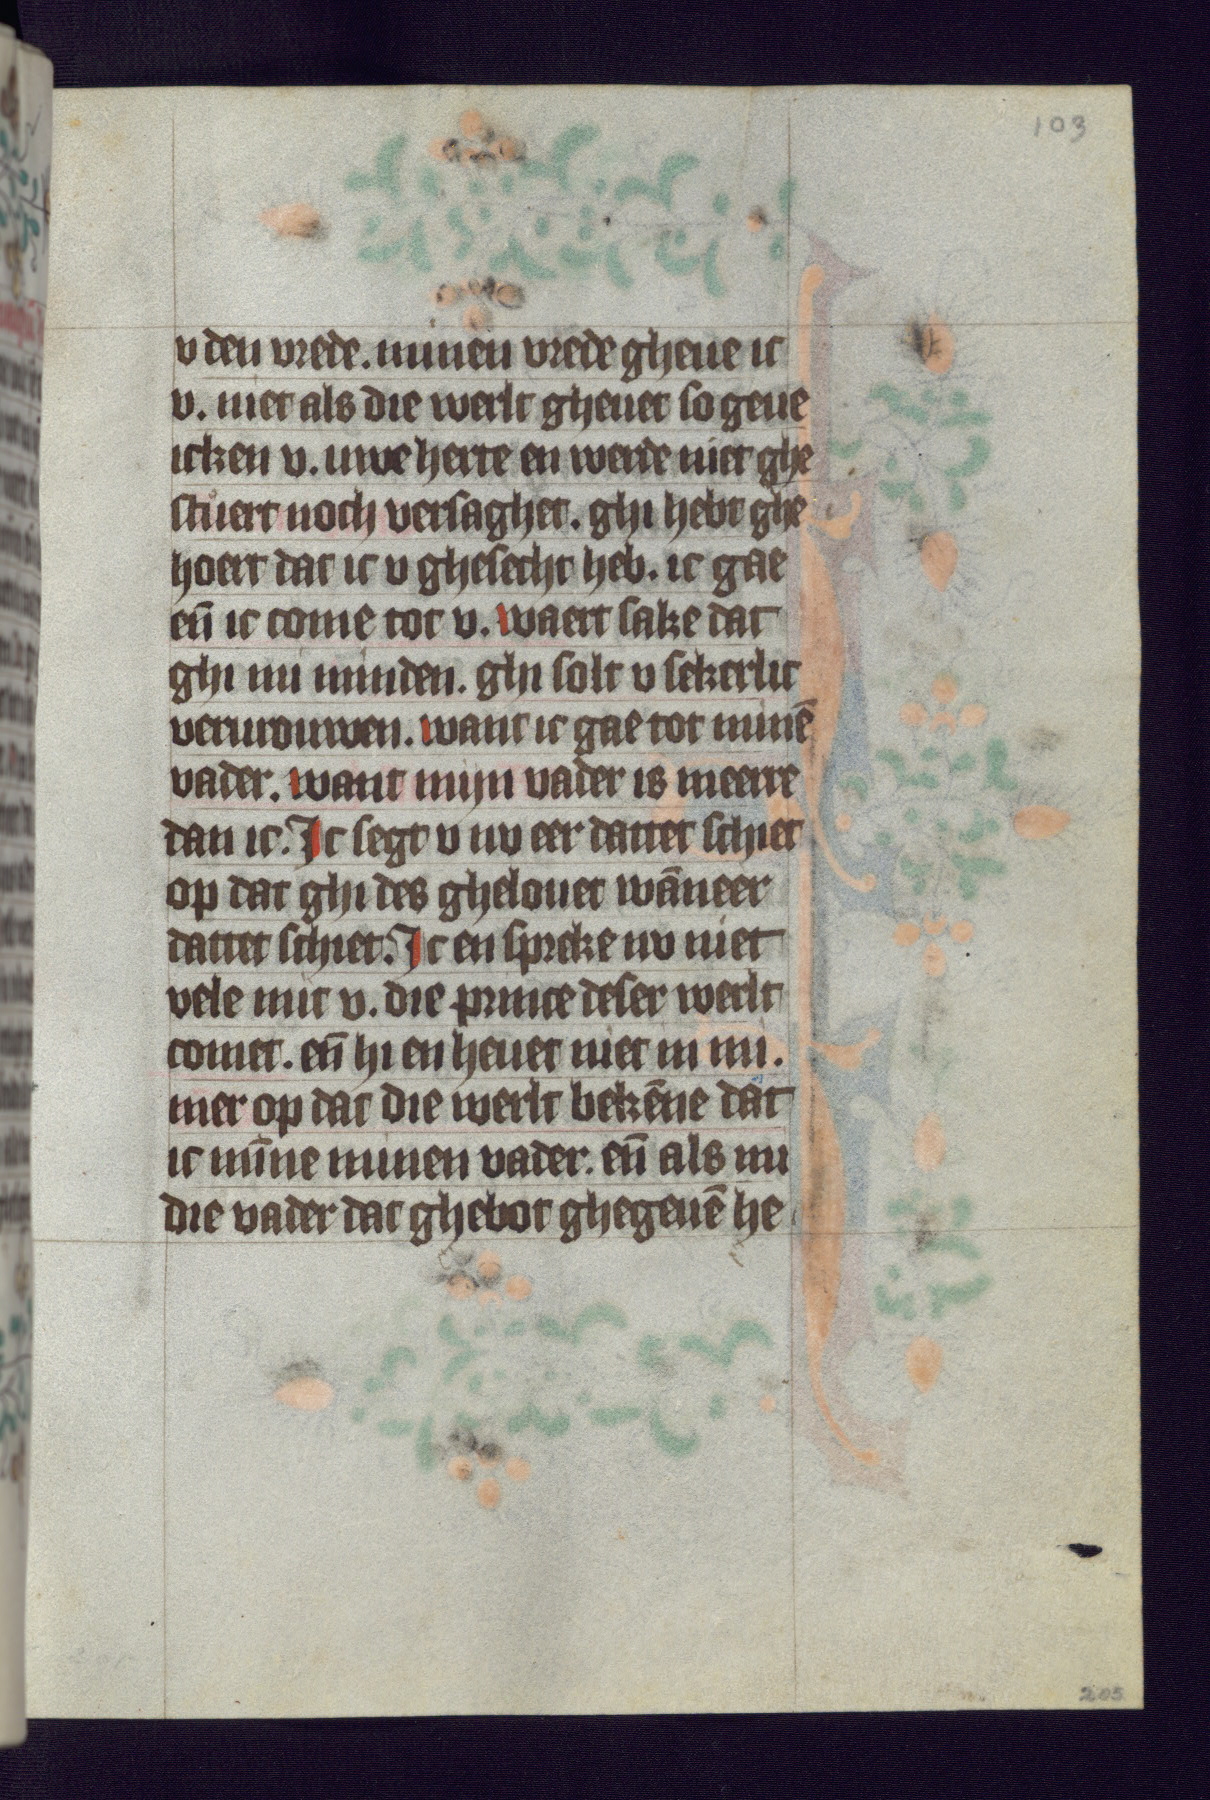 103
v den vrede. minen vrede gheue ic
v. niet als die werlt gheuet so geue
icken v. uwe herte en werde niet ghe
stuert noch versaghet. ghi hebt ghe
hoert dat ic v ghesecht heb. ic gae
en̄ ic come tot v. Waert sake dat
ghi mi minden. ghi solt v sekerlic
vervrouwen. want ic gae tot minē
vader. want mijn vader is meerre
dan ic. Ic segt v nv eer dattet schiet
op dat ghi des ghelouet wāneer
dattet schiet. Ic en spreke nv niet
vele mit v. die prince deser werlt
comet. en̄ hi en heuet niet in mi.
mer op dat die werlt bekēne dat
ic mīne minen vader. en̄ als mi
die vader dat ghebot ghegeuē he
205